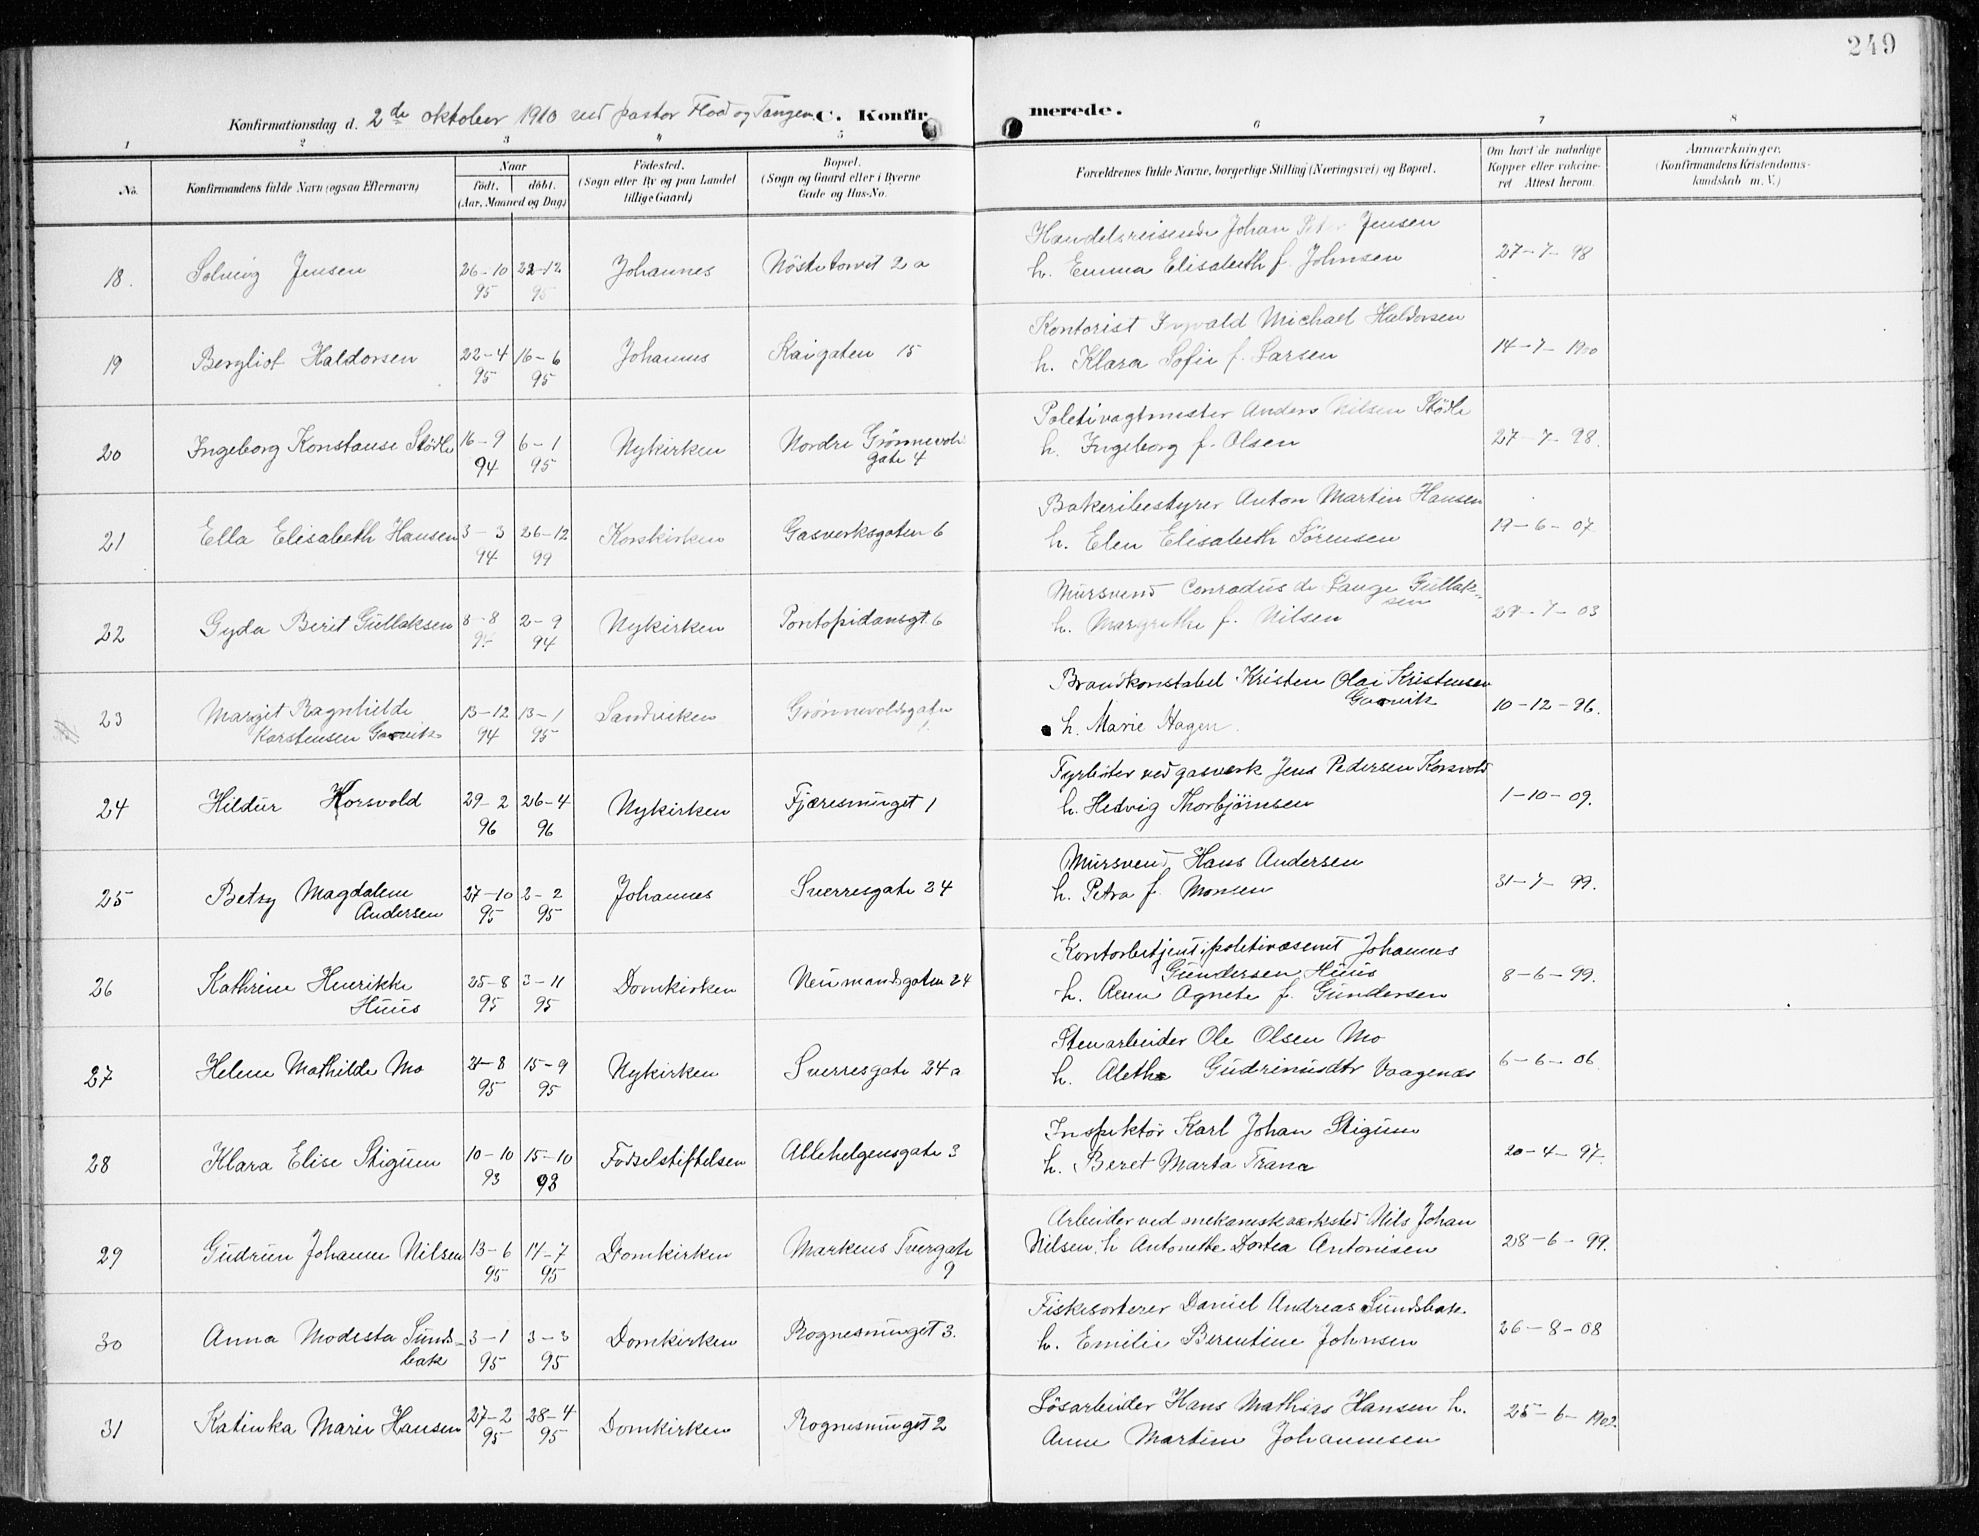 249
Konfirmationsdag d. 2de oktober 1910 ved pastor Flood og Tangen. C. Konfir merede.
1 2 3 4 5 6 7 8
No. Konfirmandens fulde Navn (ogsaa Efternavn) Naar født. døbt. (Aar, Maaned og Dag) Fødested. (Sogn eller By og paa Landet tillige Gaard) Bopæl. (Sogn og Gaard eller i Byerne Gade og Hus-No. Forældrenes fulde Navne, borgerlige Stilling (Næringsvei) og Bopæl. Om havt de naturlige Kopper eller vakcineret Attest herom. Anmærkninger. (Konfirmandens Kristendomskundskab m. V.)
18. Solveig Jensen 26-10 95 22-12 95 Johannes Nöstetorvet 2 a Handelsreisende Johan Peter Jensen
h. Emma Elisabeth f. Johnsen 27-7-98
19 Bergliot Haldorsen 22-4 95 16-6 95 Johannes Kaigaten 15 Kontorist Ingvald Michael Haldorsen
h. Klara Sofie f. Larsen 14-7-1900
20 Ingeborg Konstanse Stödle 16-9 94 6-1 95 Nykirken Nordre Grönnevolds gate 4 Politivagtmester Anders Nilsen Stödle
h. Ingeborg f. Olsen 27-7-98.
21 Ella Elisabeth Hansen 3-3 94 26-12 99 Korskirken Gasverksgaten 6 Bakeribestyrer Anton Martin Hansen
h. Elen Elisabeth Sörensen 19-6-07
22 Gyda Berit Gullaksen 8-8 94 2-9 94 Nykirken Pontopidansgt. 6 Mursvend Conradus de Lange Gullaksen
h. Margrethe f. Nilsen 29-7-03
23 Margit Ragnhilde
Karstensen Garvik 13-12 94 13-1 95 Sandviken Grönnevoldsgaten 1 Brandkonstabel Kristen Olai Kristensen
Garvik
h. Marie Hagen. 10-12-96.
24 Hildur Korsvold 29-2 96 26-4 96 Nykirken Fjæresmuget 1 Fyrböter ved gasverk Jens Pedersen Korsvold
h. Hedvig Thorbjörnsen 1-10-09.
25 Betzy Magdalene
Andersen 27-10 95 2-2 95 Johannes Sverresgate 24 Mursvend Hans Andersen
h. Petra f. Monsen 31-7-99.
26 Kathrine Henrikke
Huus 25-8 95 3-11 95 Domkirken Neumansgaten 24 Kontorbetjent i politivæsenet Johannes
Gundersen Huus
h. Anne Agnete f. Gundersen 8-6-99.
27 Helene Mathilde Mo 21-8 95 15-9 95 Nykirken Sverresgate 24a Stenarbeider Ole Olsen Mo
h. Alethe Gudrinusdtr Vaagenæs 6-6-06
28 Klara Elise Stigum 10-10 93 15-10 93 Fodselstiftelsen Allehelgensgate 3 Inspektör Karl Johan Stigum
h. Beret Marta Trana 20-4-97.
29 Gudrun Johanne Nilsen 13-6 95 14-7 95 Domkirken Markens Tvergate 9 Arbeider ved mekanisk værksted Nils Johan
Nilsen h. Antonette Dortea Antonisen 28-6-99.
30 Anna Modesta Sunds-
bak 3-1 95 3-3 95 Domkirken Rognesmuget 3. Fiskesorterer Daniel Andreas Sundsbak.
h. Emilie Berentine Johnsen 26-8-08
31 Katinka Marie Hansen 27-2 95 28-4 95 Domkirken Rognesmuget 2 Lösarbeider Hans Mathias Hansen h.
Anne Martine Johannesen 25-6-1902.